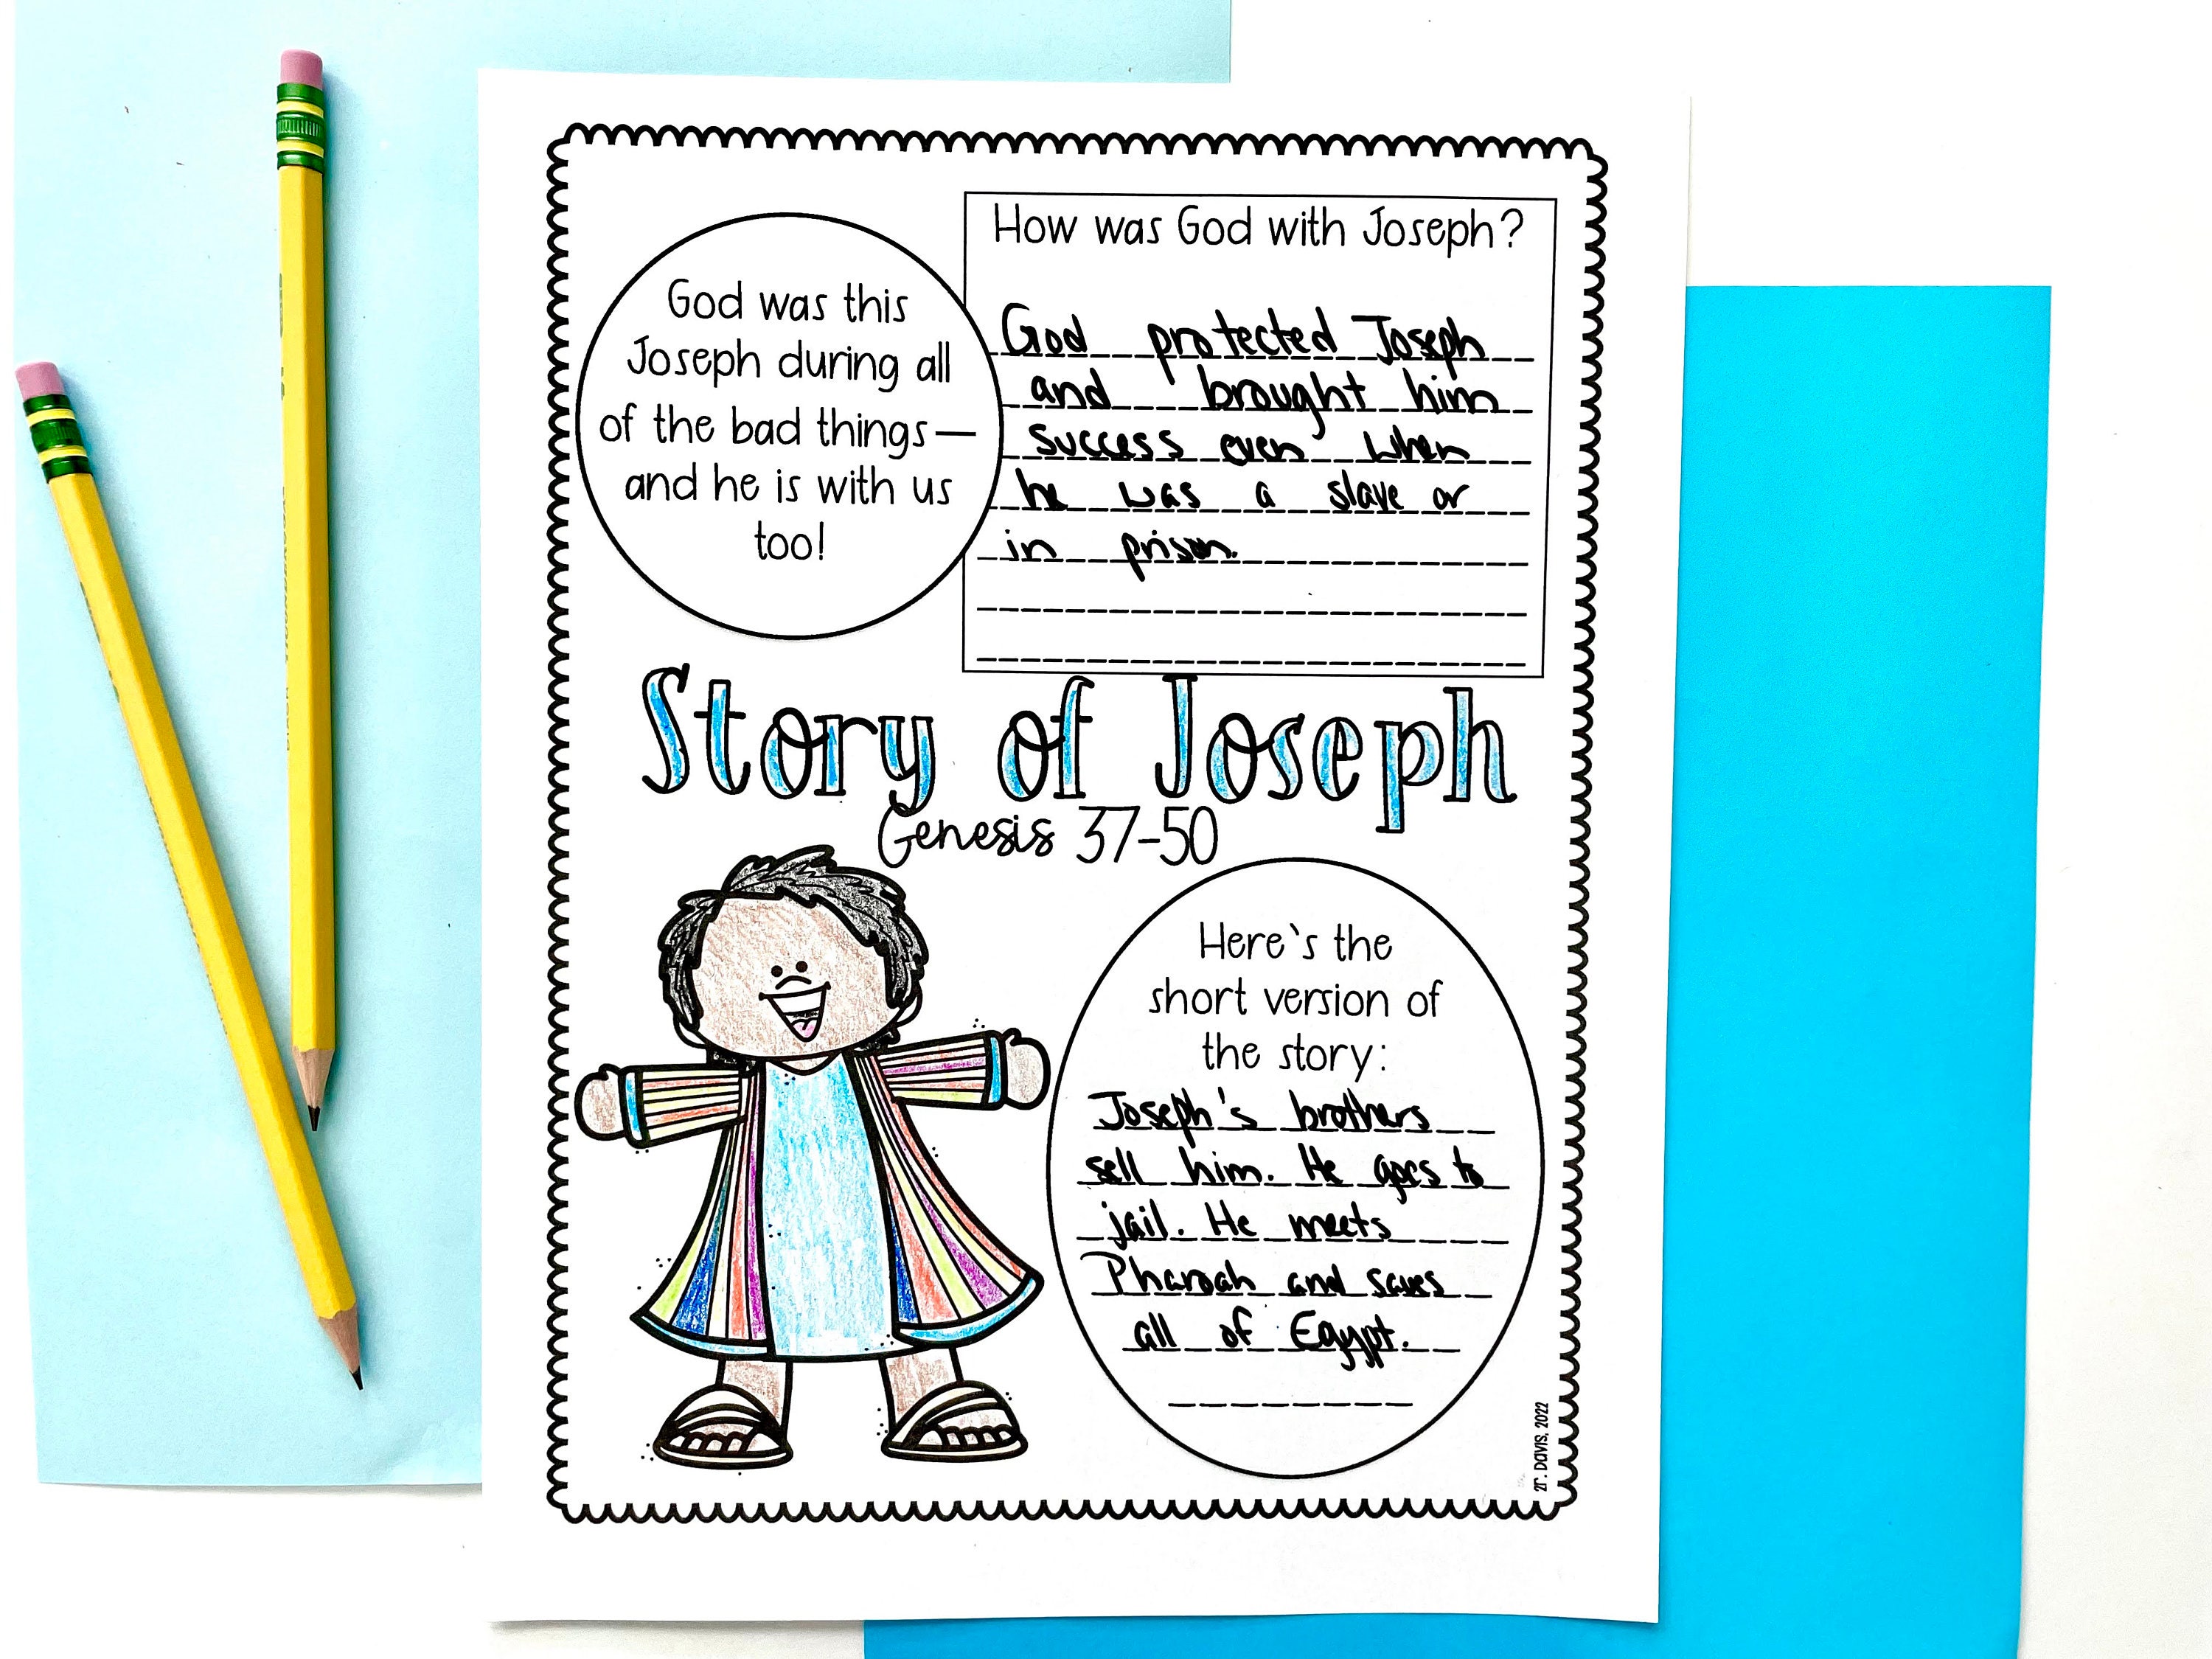 God was this
Joseph during all
of the bad things—
and he is with us
too!
How was God with Joseph?
God protected Joseph
and brought him
success even when
he was a slave or
in prison.
Story of Joseph
Genesis 37-50
Here`s the
short version of
the story:
Joseph's brothers
sell him. He goes to
jail. He meets
Pharoah and saves
all of Egypt.
DAVIS, 2022